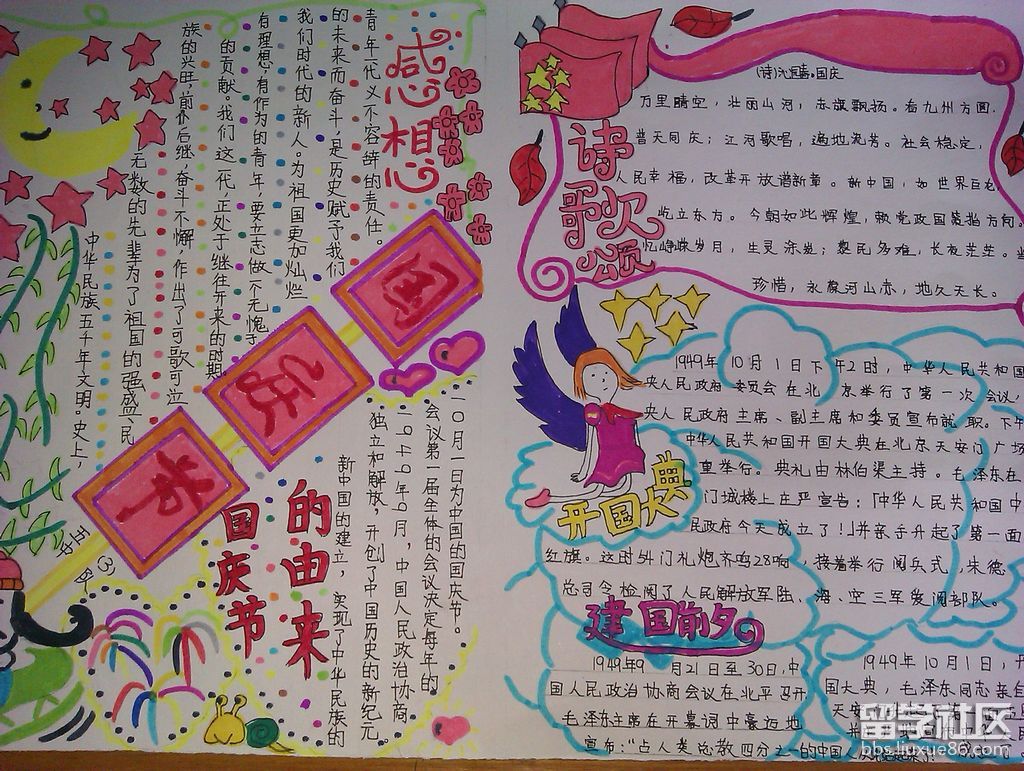 感想
青年一代义不容辞的责任。
的未来而奋斗,是历史赋予了我们
我们时代的新人。为祖国更加灿烂
有理想,有作为的青年,要立志做一个无愧于
的贡献。我们这一代,正处于继往开来的时期。
族的兴旺,前仆后继,奋斗不懈,作出了可歌可泣
无数的先辈为了祖国的强盛、民
中华民族五千年文明。史上,
国
庆
节
五中
(3)
国庆节
的由来
一〇月一日为中国的国庆节。
会议第一届全体的会议决定每年的
一九四九年9月,中国人民政治协商
独立和解放,开创了中国历史的新纪元。
新中国的建立,实现了中华民族的
诗歌颂
国庆
万里晴空,壮丽山河,赤旗飘扬。看九州方圆,
普天同庆;江河歌唱,遍地流芳。社会稳定,
人民幸福,改革开放谱新章。新中国,如世界巨
屹立东方。今朝如此辉煌,赖党政国策指方向。
忆峥嵘岁月,生灵涂炭;黎民多难,长夜茫茫。
珍惜,永葆河山赤,地久天长。
开国大典
1949年10月1日下午2时,中华人民共和国
央人民政府委员会在北京举行了第一次会议,
央人民政府主席、副主席和委员宣布就职。下午
中华人民共和国开国大典在北京天安门广场
重举行。典礼由林伯渠主持。毛泽东在
门城楼上庄严宣告:「中华人民共和国中
民政府今天成立了!」并亲手升起了第一面
红旗。这时外门礼炮齐鸣28响,接着举行阅兵式,朱德
总司令检阅了人民解放军陆、海、空三军受阅部队。
建国前夕
1949年9月21日至30日,中
国人民政治协商会议在北平召开
毛泽东主席在开幕词中豪迈地
宣布:"占人类总数四分之一的中国人
1949年10月1日,
国大典,毛泽东同志亲自
天安
留学社区
bbs.liuxue86.com